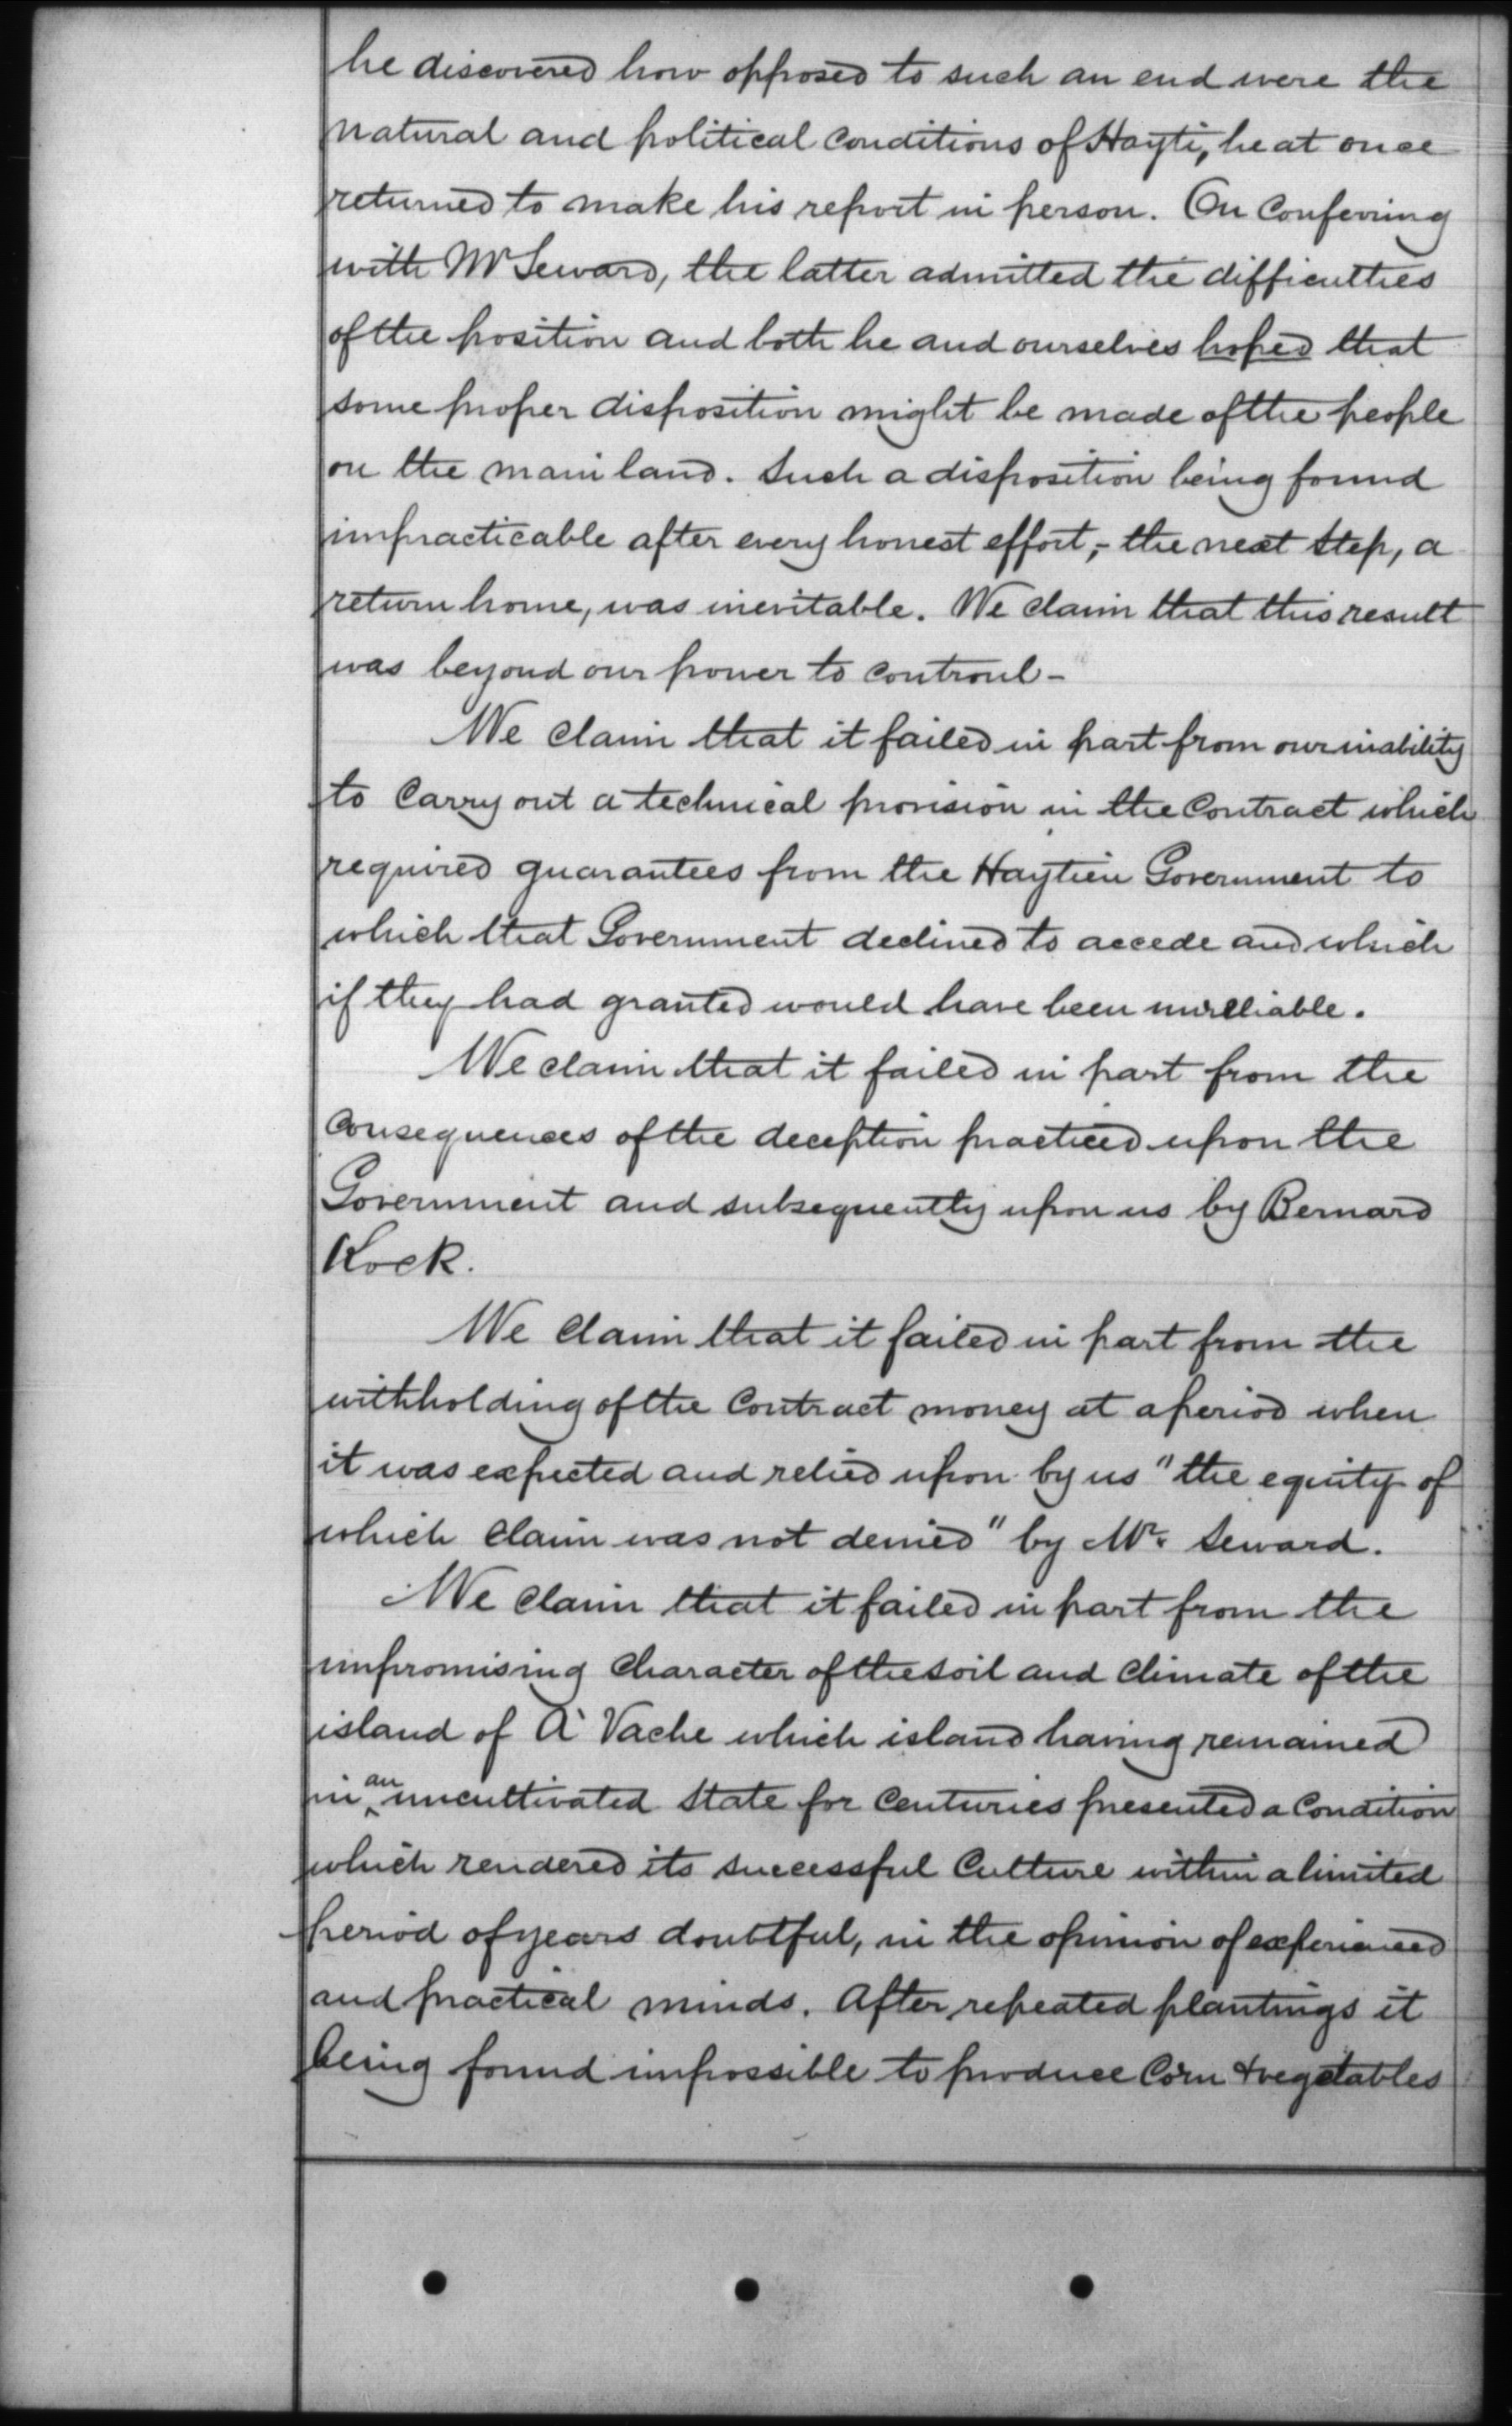 he discovered how opposed to such an end were the
natural and political conditions of Hayti, he at once
returned to make his report in person. On Conferring
with Mr Seward, the latter admitted the difficulties
of the position and both he and ourselves hoped that
some proper disposition might be made of the people
on the main land. Such a disposition being found
impracticable after every honest effort,- the next step, a
return home, was inevitable. We claim that this result
was beyond our power to controul-
We claim that it failed in part from our inability
to carry out a technical provision in the Contract which
required guarantees from the Haytien Government to
which that Government declined to accede and which
if they had granted would have been unreliable.
We claim that it failed in part from the
consequences of the deception practiced upon the
Government and subsequently upon us by Bernard
Kock.
We claim that it failed in part from the
withholding of the Contract money at a period when
it was expected and relied upon by us "the equity of
which claim was not denied" by Mr. Seward.
We claim that it failed in part from the
unpromising character of the soil and climate of the
island of A' Vache which island having remained
in an uncultivated state for centuries presented a condition
which rendered its successful culture within a limited
period of years doubtful, in the opinion of experienced
and practical minds. After repeated plantings it
being found impossible to produce Corn & vegetables